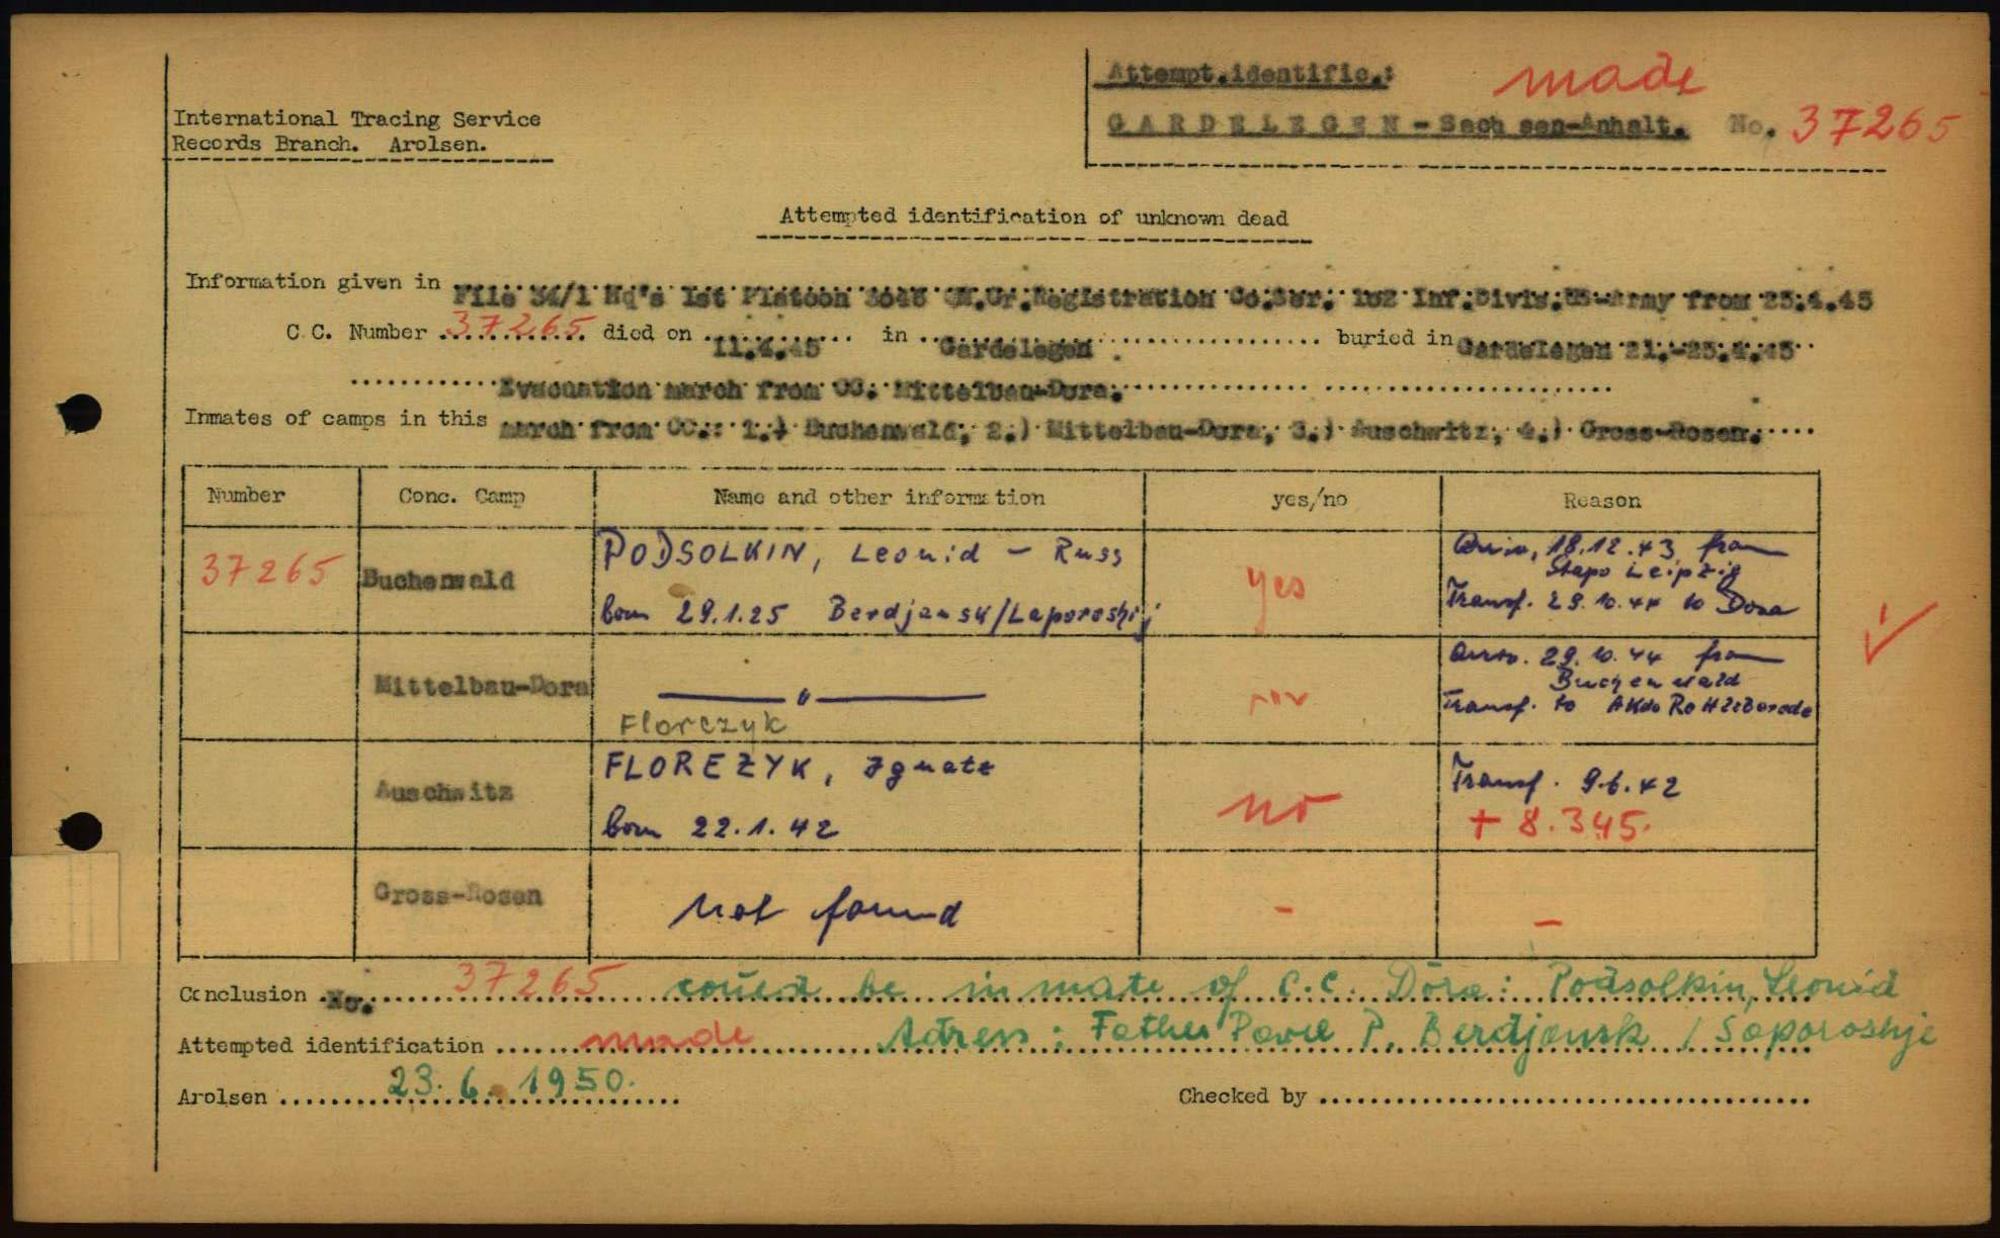 Attempt.identific.: made
GARDELEGEN-Sachsen-Anhalt. No. 37265
International Tracing Service
Records Branch. Arolsen.
Attempted identification of unknown dead
Information given in File 34/1 Hq's 1st Platoon 3048 QM.Gr.Registration Co.Ser. 102 Inf.Divis.US-Army from 25.4.45
C.C. Number 37265 died on 11.4.45 in Gardelegen buried in Gardelegen 21.-25.4.45
Evacuation march from CC. Mittelbau-Dora.
Inmates of camps in this march from CC.: 1.) Buchenwald, 2.) Mittelbau-Dora, 3.) Auschwitz, 4.) Gross-Rosen.
Number Conc. Camp Name and other information yes/no Reason
37265 Buchenwald PODSOLKIN, Leonid - Russ
born 29.1.25 Berdjansk/Laporoshij
yes
18.12.43 from
Stapo Leipzig
Transf. 29.10.44 to Dora
Mittelbau-Dora — " —
Florczyk
29.10.44 from
Buchenwald
Transf. to AKdo Rottleberode
Auschwitz FLOREZYK, Ignatz
born 22.1.42
no
Transf. 9.6.42
+ 8.3.45.
Gross-Rosen not found - -
Conclusion No. 37265 could be inmate of C.C. Dora: Podsolkin, Leonid
Attempted identification made Adress: Father Pavel P. Berdjansk / Saporoshje
Arolsen 23.6.1950. Checked by